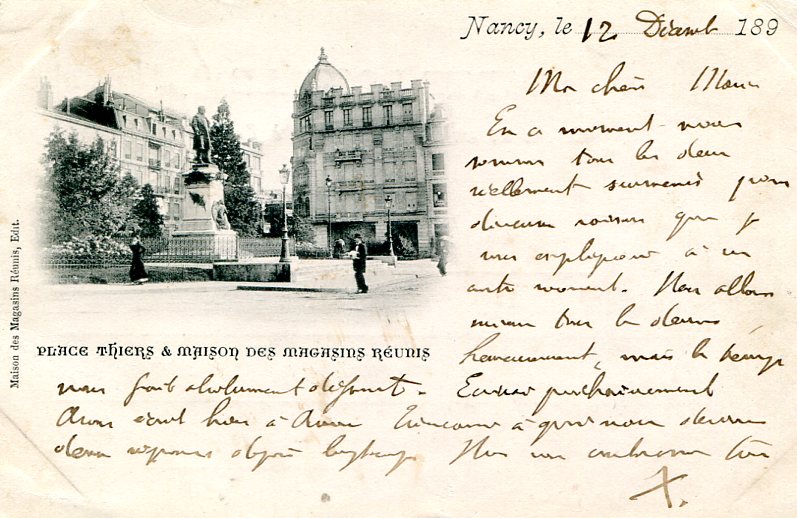 Nancy, le 12 Décemb 189
Ma chère Maman
En ce moment nous
sommes tous les deux
réellement surmenés pour
diverses raisons que je
vous expliquerai à un
autre moment. Nous allons
mieux tous les deux
heureusement, mais le temps
nous fait absolument défaut. Ecrirai prochainement
Avons écrit hier à
à qui nous devions
deux réponses depuis longtemps. Nous vous embrassons tous
X.
PLACE THIERS & MAISON DES MAGASINS RÉUNIS
Maison des Magasins Réunis, Edit.